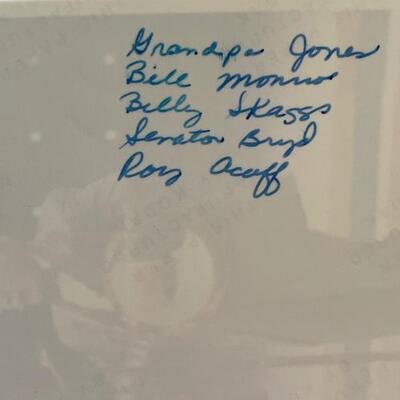 Grandpa Jones
Bill Monroe
Billy Skaggs
Senator Bryd
Roy Acuff